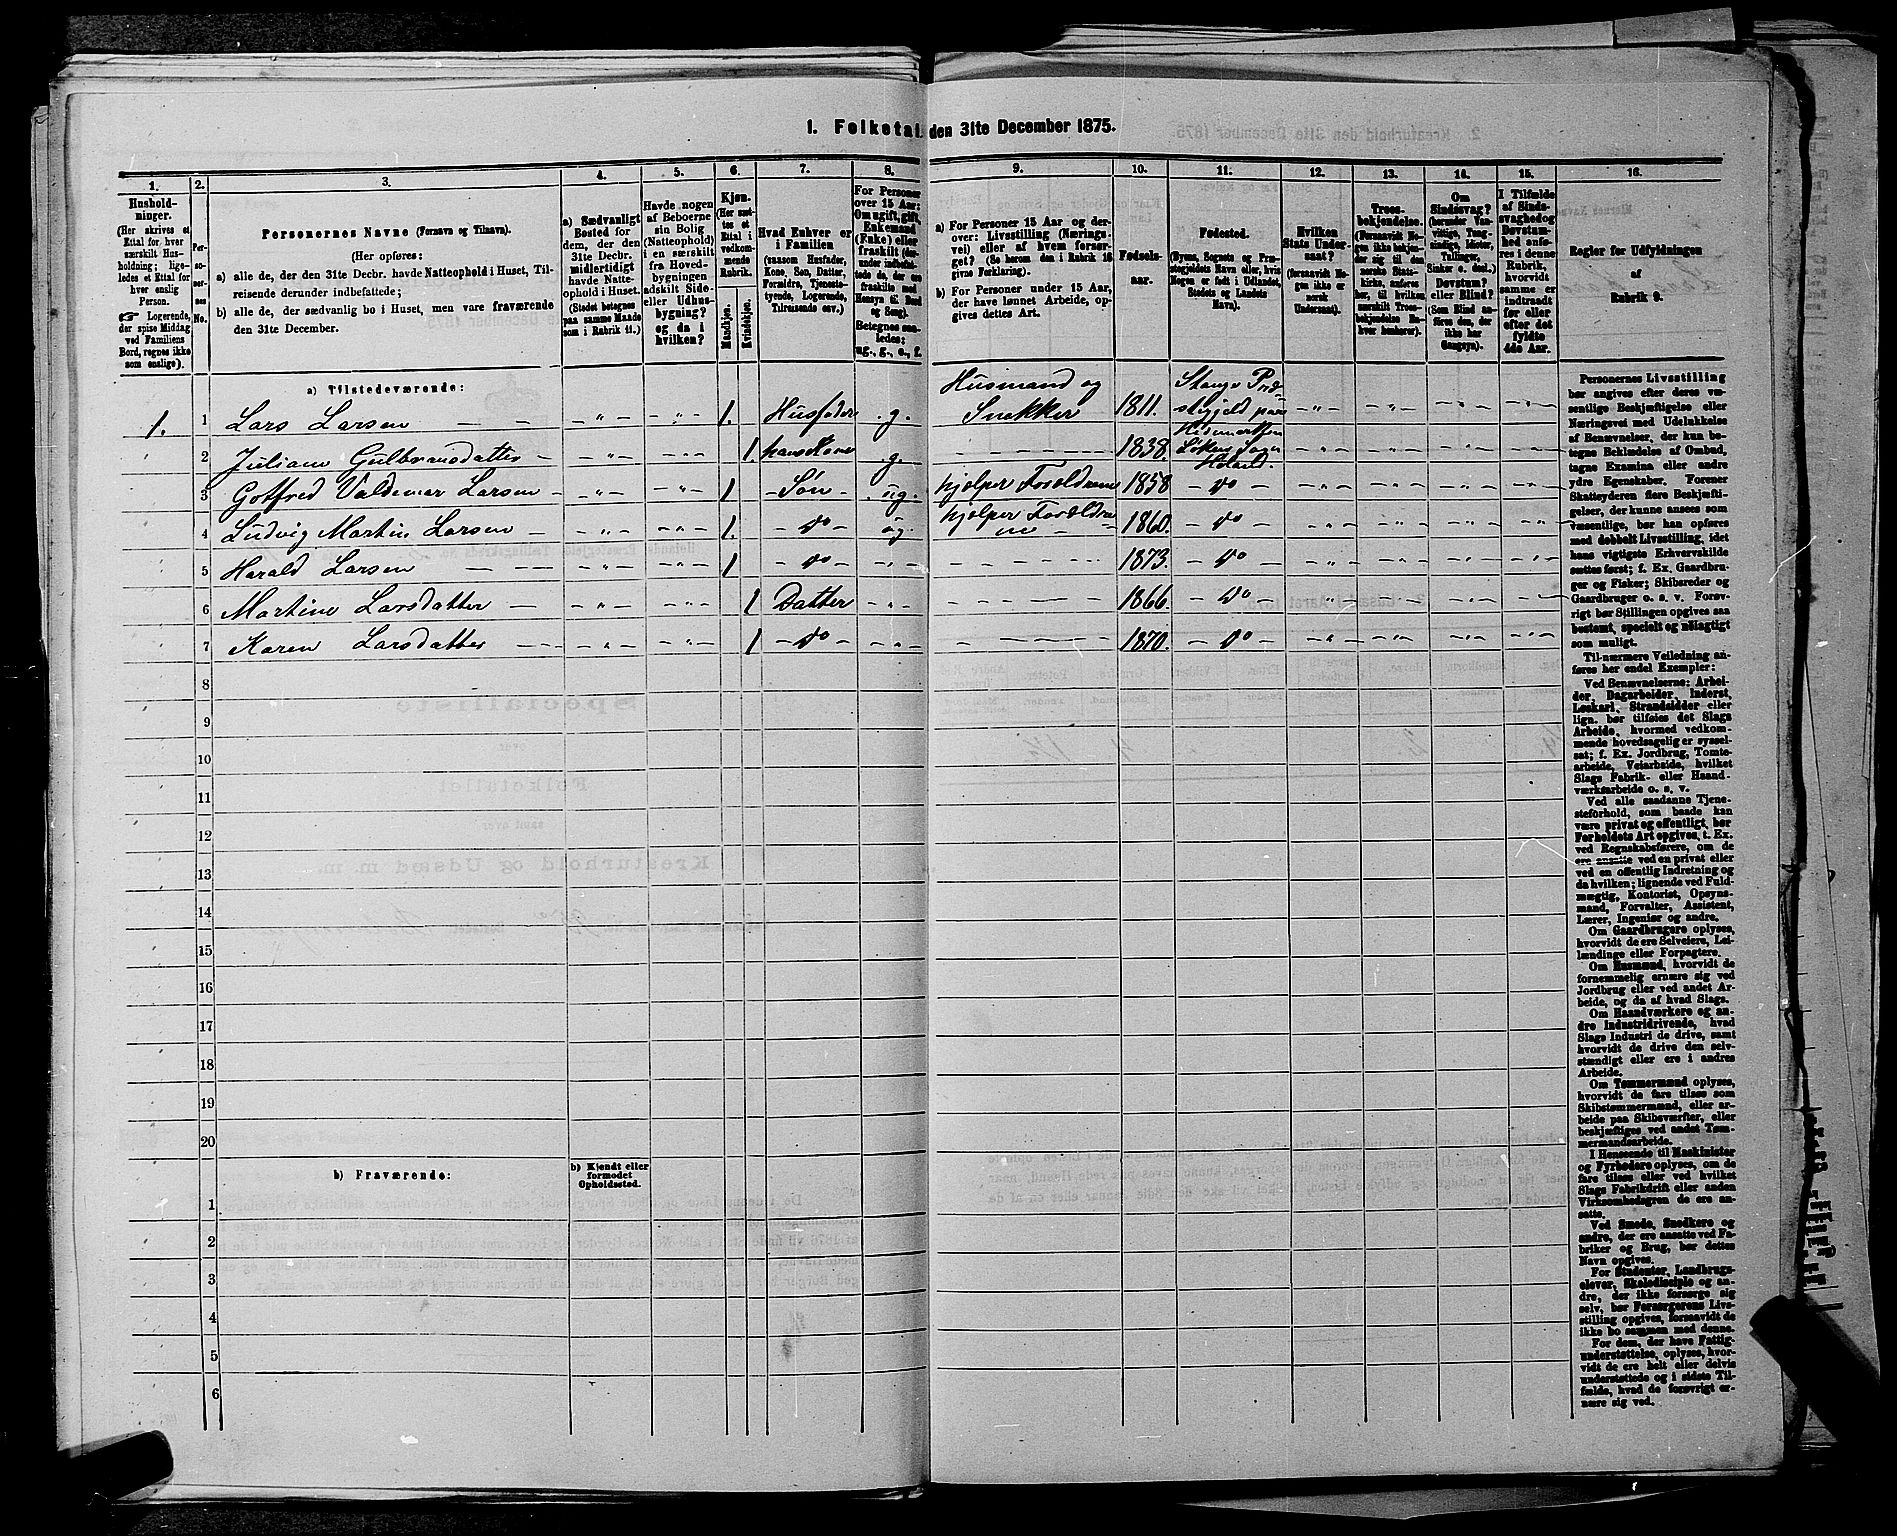 1. Folketal den 31te December 1875.
1.
Husholdninger.
(Her skrives et Ettal for hver særskilt Husholdning; ligeledes et Ettal for hver enslig Person.
☞ Logerende, der spise Middag ved Familiens Bord, regnes ikke som enslige).
2.
Personernes No.
3.
Personernes Navne (Fornavn og Tilnavn).
(Her opføres:
a) alle de, der den 31te Decbr. havde Natteophold i Huset, Tilreisende derunder indbefattede;
b) alle de, der sædvanlig bo i Huset, men vare fraværende den 31te December.
4.
a) Sædvanligt Bosted for dem, der den 31te Decbr. midlertidigt havde Natteophold i Huset.
(Stedet betegnes paa samme Maade som i Rubrik 11.)
5.
Havde nogen af Beboerne sin Bolig (Natteophold) i en særskilt fra Hovedbygningen adskilt Side- eller Udhusbygning? og da i hvilken?
6.
Kjøn.
(Her sættes et Ettal i vedkommende Rubrik.
Mandkjøn.
Kvindekjøn.
7.
Hvad Enhver er i Familien
(saasom Husfader, Kone, Søn, Datter, Forældre, Tjenestetyende, Logerende, Tilreisende osv.)
8.
For Personer over 15 Aar: Om ugift, gift, Enkemand (Enke) eller fraskilt
Betegnes saaledes: ug., g., e., f.
9.
a) For Personer 15 Aar og derover: Livsstilling (Næringsvei) eller af hvem forsørget? (Se herom den i Rubrik 16 givne Forklaring).
b) For Personer under 15 Aar, der have lønnet Arbeide, opgives dettes Art.
10.
Fødselsaar.
11.
Fødested.
(Byens, Sognets og Præstegjeldets Navn eller, hvis Nogen er født i Udlandet, Stedets og Landets Navn).
12.
Hvilken Stats Undersaat?
(forsaavidt Nogen ikke er norsk Undersaat).
13.
Troesbekjendelse.
(Forsaavidt Nogen ikke bekjender sig til den norske Statskirke, anføres her, til hvilken særskilt Troesbekjendelse Enhver henhører).
14.
Om Sindssvag?
Døvstum? eller Blind?
(Som Blind anføres den, der ikke har Gangsyn).
15.
I Tilfælde af Sindssvaghed og Døvstumhed anføres i denne Rubrik, hvorvidt samme er indtraadt før eller efter det fyldte 4de Aar.
16.
Regler for Udfyldningen
af
Rubrik 9.
a) Tilstedeværende:
1. 1 Lars Larsen — — - „ — - „ — 1. Husfader g. Husmand og Snekker 1811. Stange Prdstgjeld paa Hedmarken
2 Juliane Gulbransdatter - „ — - „ — 1. hans Kone g. 1838. Løken Sogn Høland.
3 Gotfred Valdemar Larsen - - „ — - „ — 1 - Søn - ug. hjelper Forældrene 1858 - do -
4 Ludvig Martin Larsen - - „ — - „ — 1. - do - ug. hjelper Forældrene 1860. - do -
5 Harald Larsen — — - „ — - „ — 1 - do - - „ - 1873. - do -
6 Martine Larsdatter — - „ — - „ — 1 Datter - „ - 1866. - do -
7 Karen Larsdatter — - „ — - „ — 1 - do - - „ - 1870. - do -
8
9
10
11
12
13
14
15
16
17
18
19
20
b) Fraværende:
b) Kjendt eller formodet Opholdssted.
1
2
3
4
5
6
Personernes Livsstilling
bør angives efter deres væ-
sentlige Beskjæftigelse eller
Næringsvei med Udelukkelse
af Benævnelser, der kun be-
tegne Beklædelse af Ombud,
tagne Examina eller andre
ydre Egenskaber. Forener
Skatteyderen flere Beskjæfti-
gelser, der kunne ansees som
væsentlige, bør han opføres
med dobbelt Livsstilling, idet
hans vigtigste Erhvervskilde
sættes først; f. Ex. Gaardbru-
ger og Fisker; Skibsreder og
Gaardbruger o. s. v. Forøv-
rigt bør Stillingen opgives saa
bestemt, specielt og nøiagtigt
som muligt.
Til nærmere Veiledning an-
føres her endel Exempler:
Ved Benævnelserne: Arbei-
der, Dagarbeider, Inderst,
Løskarl, Strandsidder eller
lign. bør tilføies det Slags
Arbeide, hvormed vedkom-
mende hovedsagelig er syssel-
sat; f. Ex. Jordbrug, Tomte-
arbeide, Veiarbeide, hvilket
Slags Fabrik- eller Haand-
værksarbeide o. s. v.
Ved alle saadanne Tjene-
steforhold, som baade kan
være privat og offentligt, bør
Forholdets Art opgives, t. Ex.
ved Regnskabsførere, om de
ere ansatte ved en privat eller
ved en offentlig Indretning og
da hvilken; lignende ved Fuld-
mægtig, Kontorist, Opsyns-
mand, Forvalter, Assistent,
Lærer, Ingeniør og andre.
Om Gaardbrugere oplyses,
hvorvidt de ere Selveiere, Lei-
lændinge eller Forpagtere.
Om Husmænd, hvorvidt de
fornemmelig ernære sig ved
Jordbrug eller ved andet Ar-
beide, og da af hvad Slags.
Om Haandværkere og an-
dre Industridrivende, hvad
Slags Industri de drive, samt
hvorvidt de drive den selv-
stændigt eller ere i andres
Arbeide.
Om Tømmermænd oplyses,
hvorvidt de fare tilsøs som
Skibstømmermænd, eller ar-
beide paa Skibsværfter, eller
beskjæftiges ved andet Tøm-
mermandsarbeide.
I Henseende til Maskinister
og Fyrbødere oplyses, om de
fare tilsøs eller ved hvilket
Slags Fabrikdrift eller anden
Virksomhed de ere an-
satte.
Ved Smede, Snedkere og
andre, der ere ansatte ved Fa-
briker og Brug, bør dettes
Navn opgives.
For Studenter, Landbrugs-
elever, Skoledisciple og an-
dre, der ikke forsørge sig
selv, bør Forsørgerens Livs-
stilling opgives, forsaavidt de
ikke bo sammen med denne.
For dem, der have Fattig-
understøttelse, oplyses, hvor-
vidt de ere helt eller delvis
understøttede og i sidste Til-
fælde, hvad de forøvrigt er-
nære sig ved.